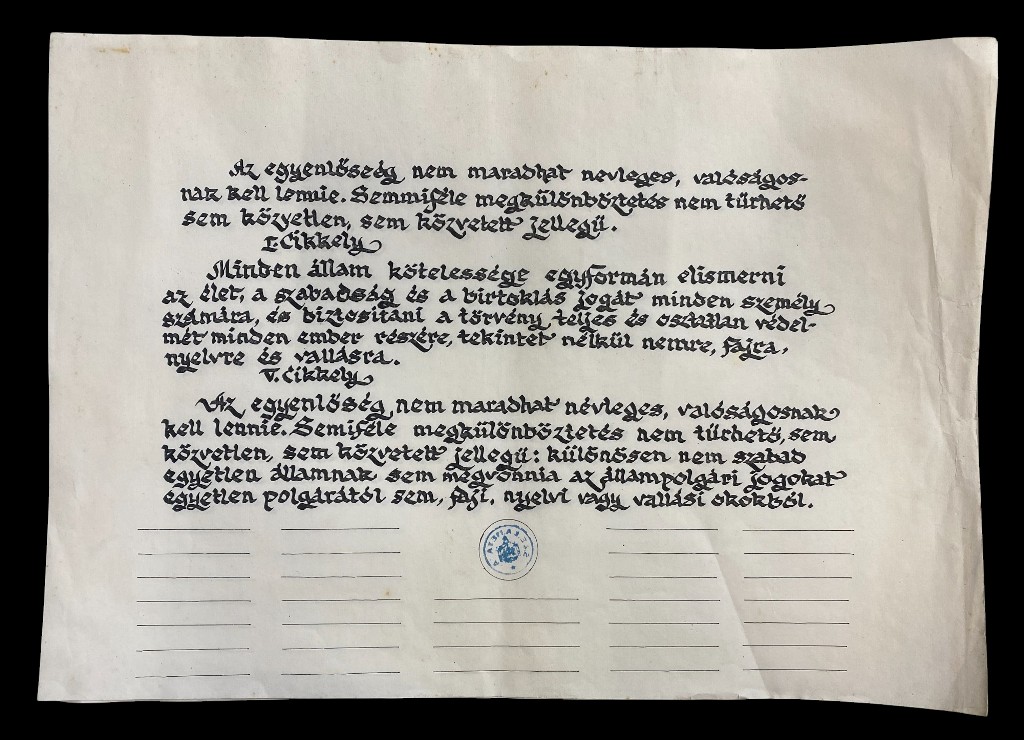 Az egyenlőseég nem maradhat nevleges, valóságos-
nak kell lennie. Semmiféle megkülönböztetés nem tűrhető
sem közvetlen, sem közvetett jellegű.
I. Cikkely
Minden állam kötelessége egyformán elismerni
az élet, a szabadság és a birtoklás jogát minden személy
számára, és biztosítani a törvény teljes és osztatlan védel-
mét minden ember részére, tekintet nélkül nemre, fajra,
nyelvre és vallásra.
V. Cikkely
Az egyenlőség nem maradhat névleges, valóságosnak
kell lennie. Semiféle megkülönböztetés nem tűrhető, sem
közvetlen, sem közvetett jellegű: különösen nem szabad
egyetlen államnak sem megvonnia az állampolgári jogokat
egyetlen polgárától sem, faji, nyelvi vagy vallási okokból.